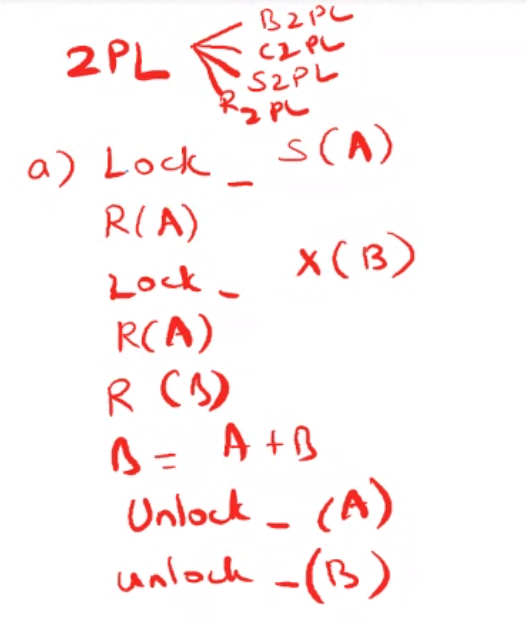 B2PL
2PL
C2PL
S2PL
R2PL
a) Lock _ S(A)
R(A)
Lock _ X(B)
R(A)
R (B)
B = A + B
Unlock _ (A)
unlock _ (B)